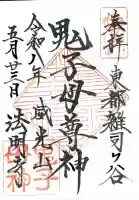 奉拝
東都雑司ヶ谷
鬼子母尊神
威光山
法明寺
令和八年
五月廿三日